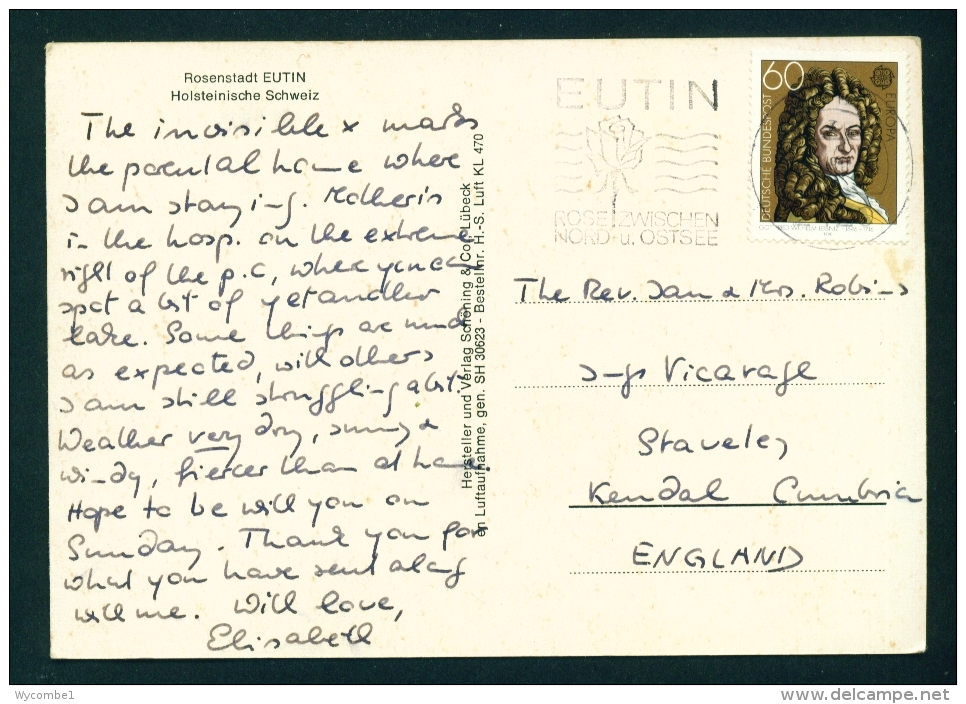 Rosenstadt EUTIN
Holsteinische Schweiz
The invisible x marks
the parental home where
I am staying. Mother is
in the hosp. on the extreme
right of the p.c, where you can
spot a bit of yet another
lake. Some things are much
as expected, with others
I am still struggling a bit.
Weather very dry, sunny &
windy, fiercer than at home.
Hope to be with you on
Sunday. Thank you for
what you have sent along
with me. With love,
Elisabeth
Hersteller und Verlag Schöning & Co · Lübeck
en Luftaufnahme, gen. SH 30623 - Bestellnr. H.-S. Luft KL 470
EUTIN
ROSE ZWISCHEN
NORD- u. OSTSEE
60
DEUTSCHE BUNDESPOST
EUROPA
The Rev. Ian & Mrs. Robins
Ings Vicarage
Staveley
Kendal Cumbria
ENGLAND
Wycombe1
www.delcampe.net